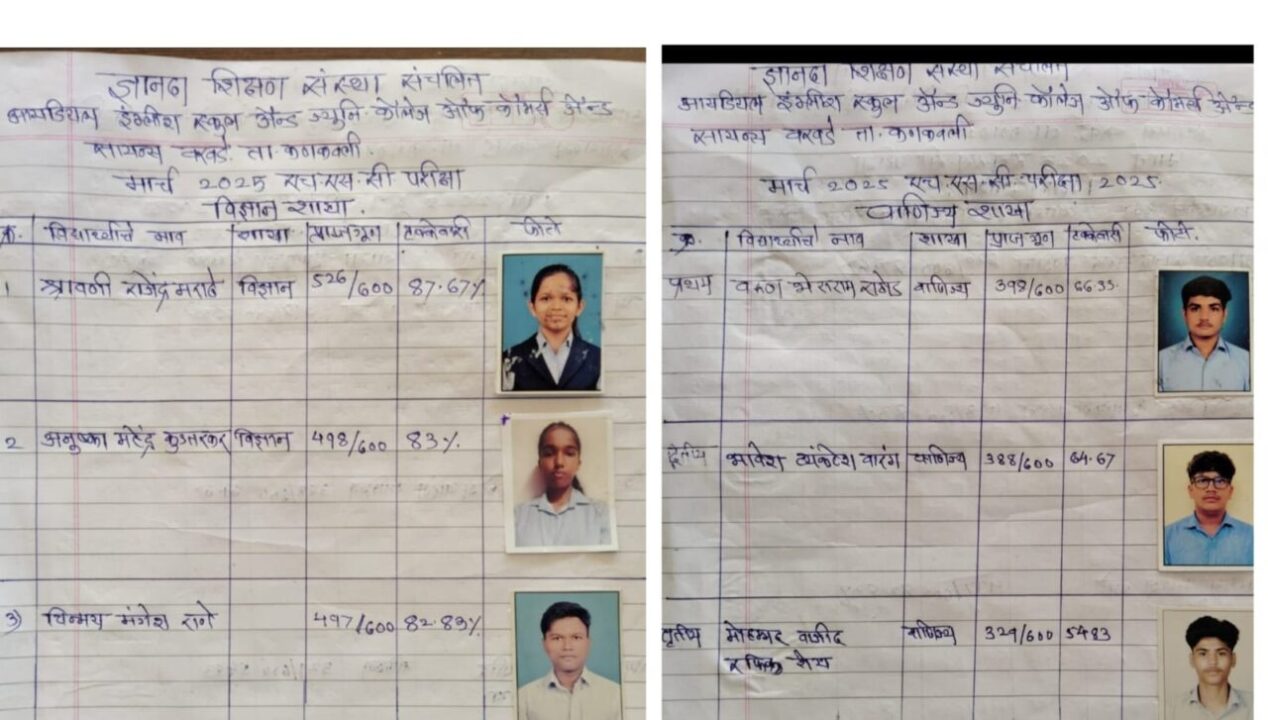 ज्ञानदा शिक्षण संस्था संचलित
आयडियल इंग्लीश स्कुल ॲन्ड ज्युनि. कॉलेज ऑफ कॉमर्स ॲन्ड
सायन्स वरवडे ता. कणकवली.
मार्च 2025 एच.एस.सी परीक्षा
विज्ञान शाखा.
क्र. विद्यार्थ्याचे नाव शाखा प्राप्त गुण टक्केवारी फोटो
1 श्रावणी राजेंद्र मराठे विज्ञान 526/600 87.67%
2 अनुष्का महेंद्र कुडतरकर विज्ञान 498/600 83%
3) चिन्मय मंगेश राणे 497/600 82.83%
ज्ञानदा शिक्षण संस्था संचलित
आयडियल इंग्लीश स्कुल ॲन्ड ज्युनि. कॉलेज ऑफ कॉमर्स ॲन्ड
सायन्स वरवडे ता. कणकवली
मार्च 2025 एच.एस.सी. परीक्षा, 2025.
वाणिज्य शाखा
क्र. विद्यार्थ्याचे नाव शाखा प्राप्त गुण टक्केवारी फोटो.
प्रथम वाणिज्य 398/600 66.33.
द्वितीय भावेश व्यंकटेश वारंग वाणिज्य 388/600 64.67
तृतीय मोहम्मद वाणिज्य 329/600 5483
रफिक शेख